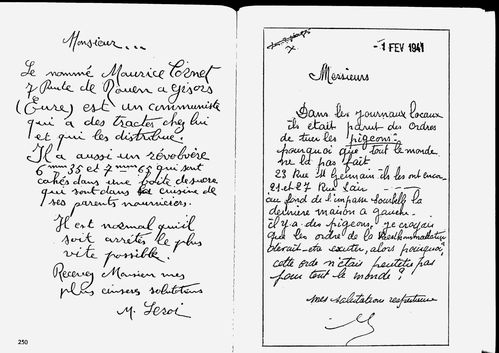 Monsieur...
Le nommé Maurice Cornet
7 Route de Rouen a Gisors
(Eure) est un communiste
qui a des tractes chez lui
et qui les distribue.
Il a aussi un révolvère
6 mm 35 et 7 mm 65 qui sont
cachés dans une boite de sucre
qui sont dans la cuisine de
ses parents nourriciers.
Il est normal qu'il
soit arrêtés le plus
vite possible.
Recevez Monsieur mes
plus sincères salutations
M.
250
- 1 FEV 1941
Messieurs
Dans les journaux locaux
ils était parut des ordres
de tuer les pigeons
pourquoi que tout le monde
ne la pas fait
23 Rue St Germain ils les ont encore
21 et 27 Rue
au fond de l'impasse la
dernière maison a gauche
il y a des pigeons, je croyais
que les ordre de la
devrait etre executer, alors pourquoi
cette ordre n'etait peutetre pas
pour tout le monde?
mes salutation respectueuse